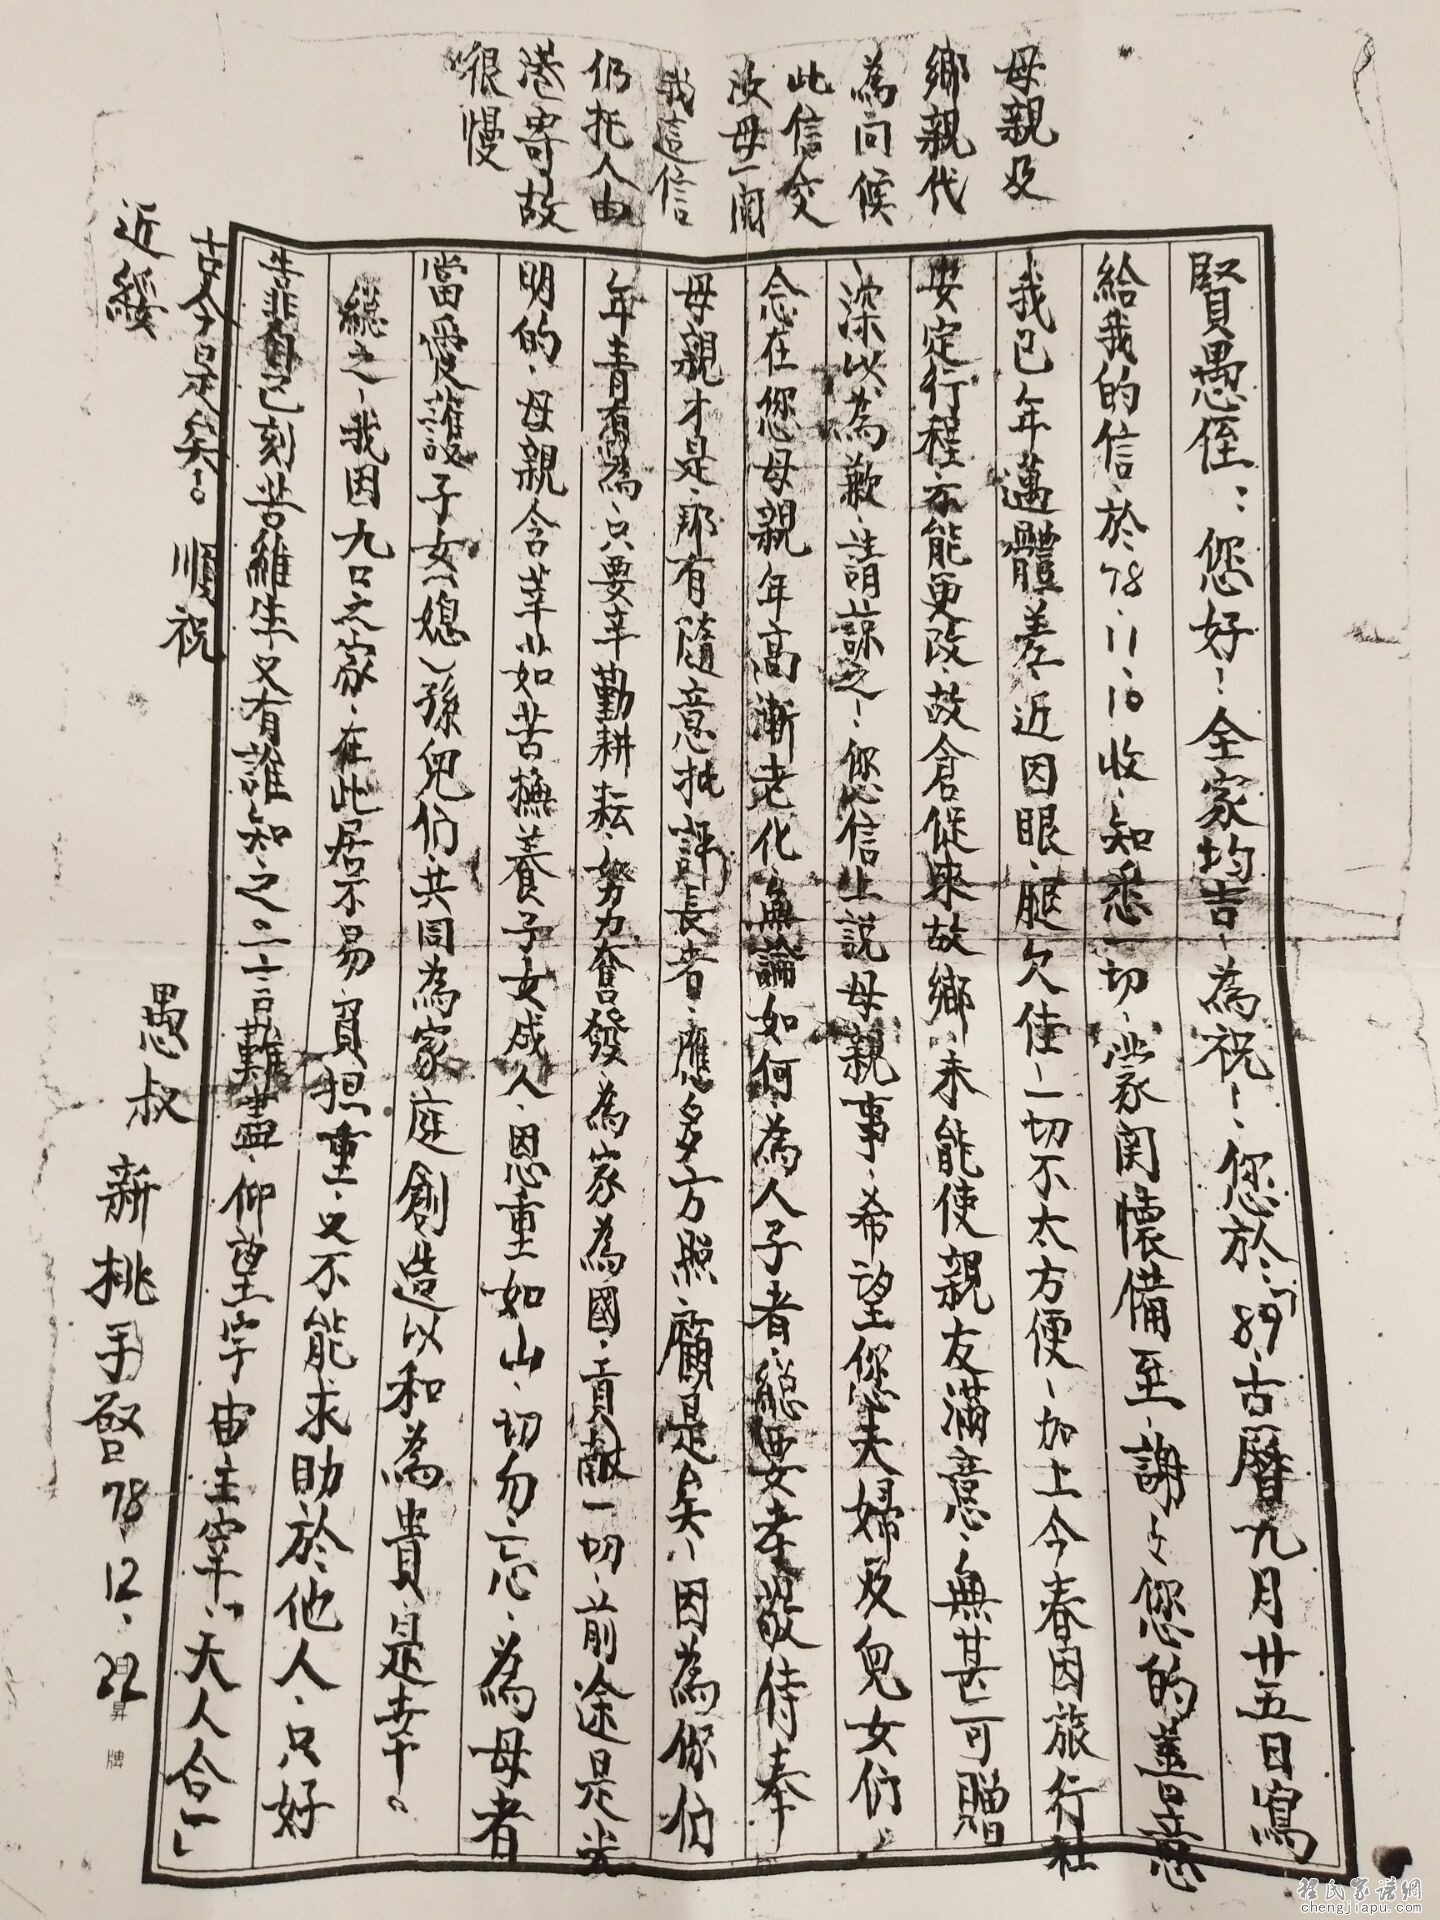 賢愚侄：您好！全家均吉，為祝！您於「89.古曆九月廿五日寫
給我的信，於78.11.10收，知悉一切，蒙関懷備至，謝々您的善意
我已年邁體差，近因眼、腿欠佳，一切不太方便，加上今春因旅行社
安定行程，不能更改，故倉促來故鄉，未能使親友滿意，無甚可贈
深以為歉，請諒之！您信上說母親事，希望您夫婦及兒女们，
念在您母親年高漸老化，無論如何，為人子者，總要孝敬侍奉
母親才是，那有隨意批評長者，應多方照顧是矣，因為你伯
年青有為，只要辛勤耕耘，努力奮發，為家為國，貢献一切，前途是光
明的，母親含莘茹苦撫養子女成人，恩重如山，切勿忘，為母者
當愛護子女（媳）孫兒们，共同為家庭創造以和為貴，是幸。
總之，我因九口之家，在此居不易，負担重，又不能求助於他人，只好
自己刻苦維生又有誰知之。一言難盡，仰望宇宙主宰，「天人合一」
古今是矣！。順祝
近綏
愚叔 新桃手啓78.12.22
母親及
鄉親代
為问候
此信交
汝母一閱
我這信
仍托人由
港寄故
很慢
昇牌
程氏家譜網
chengjiapu.com